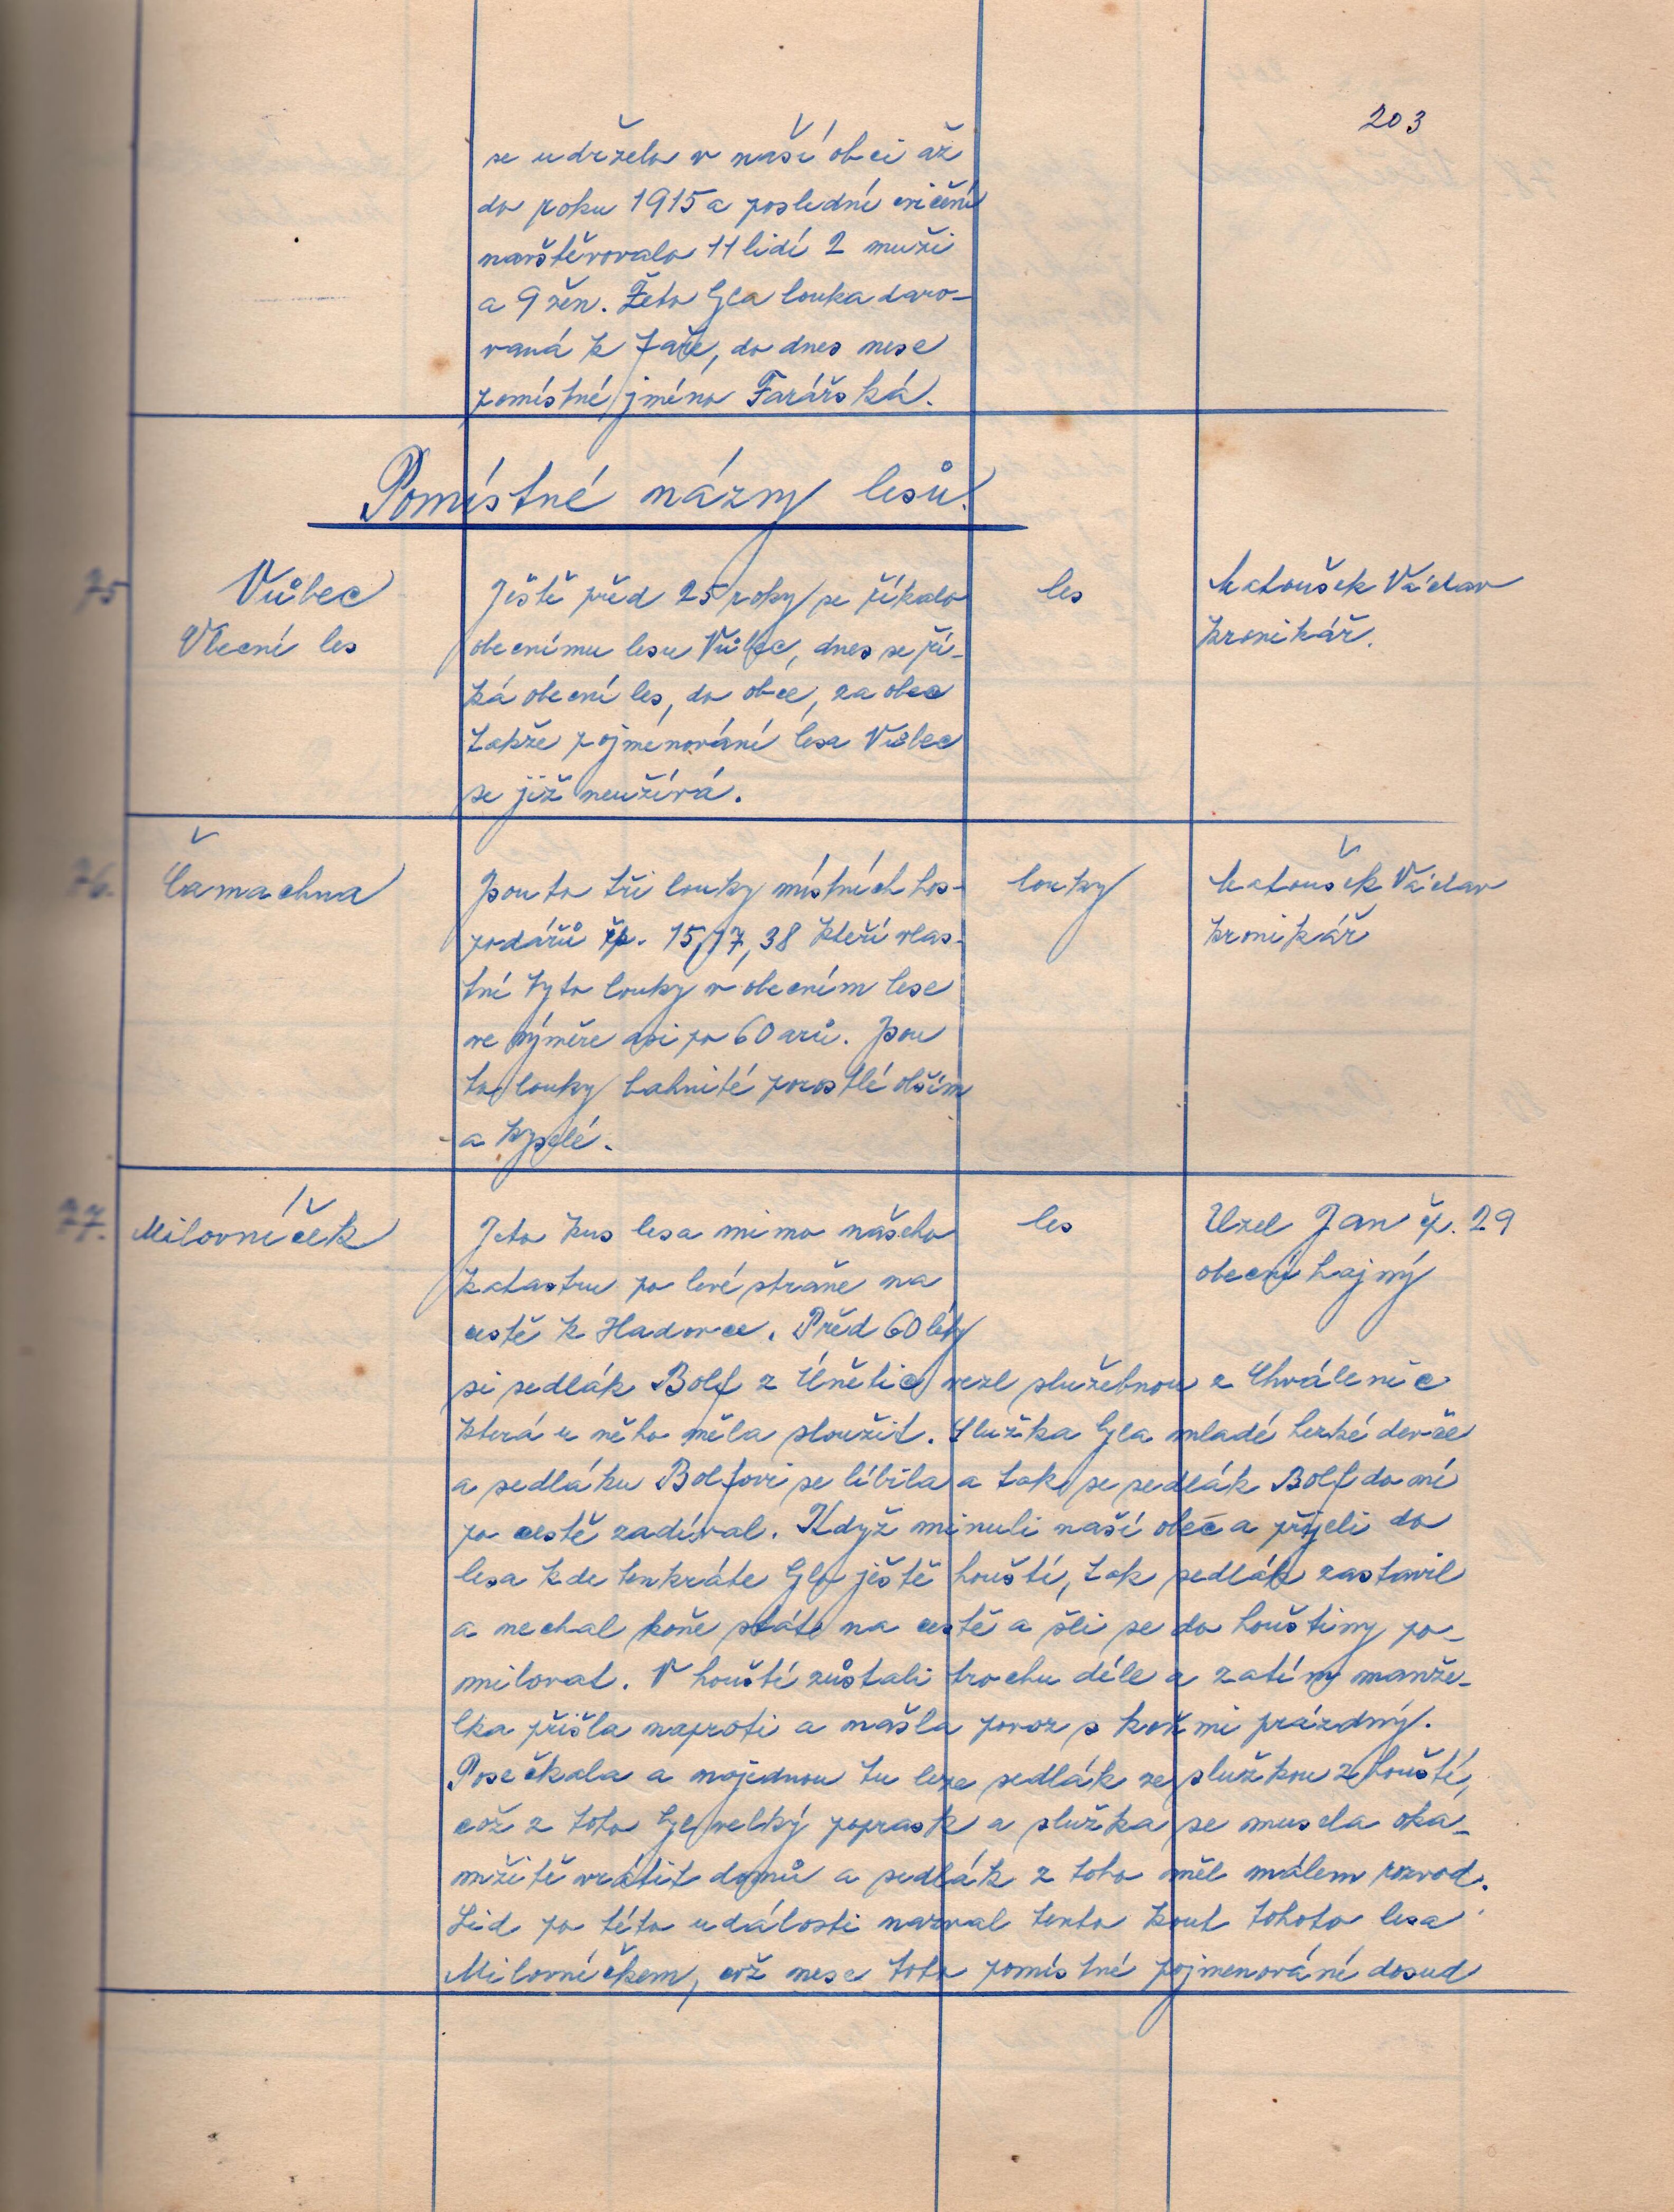 203
se udrželo v naší obci až
do roku 1915 a poslední cvičení
navštěvovalo 11 lidí 2 muži
a 9 žen. Žeto byla louka daro-
vaná k faře, do dnes nese
pomístné jméno Farářská.
Pomístné názvy lesů.
75
Vůbec
Obecní les
Ještě před 25 roky se říkalo
obecnímu lesu Vůbec, dnes se ří-
ká obecní les, do obce, za obec
takže pojmenování lesa Vůbec
se již neužívá.
les
Matoušek Václav
kronikář.
76.
Čamachna
Jsou to tři louky místních hos-
podářů čp. 15, 17, 38 kteří vlas-
tní tyto louky v obecním lese
ve výměře asi po 60 arů. Jsou
to louky bahnité porostlé olším
a kyselé.
louky
Matoušek Václav
kronikář
77.
Milovníček
Jeto kus lesa mimo našeho
katastru po levé straně na
cestě k Hadovce. Před 60 léty
si sedlák Bolf z Únětic vezl služebnou z Chválenic
která u něho měla sloužit. Služka byla mladé hezké děvče
a sedláku Bolfovi se líbila a tak se sedlák Bolf do ní
po cestě zadíval. Když minuli naší obec a přijeli do
lesa kde tenkráte bylo ještě houští, tak sedlák zastavil
a nechal koně státi na cestě a šli se do houštiny po-
milovat. V houští zůstali trochu déle a zatím manže-
lka přišla naproti a našla povoz s koňmi prázdný.
Posečkala a najednou tu leze sedlák se služkou z houští,
což z toho byl velký poprask a služka se musela oka-
mžitě vrátit domů a sedlák z toho měl málem rozvod.
Lid po této události nazval tento kout tohoto lesa
Milovníčkem, což nese toto pomístné pojmenování dosud
les
Uzel Jan čp. 29
obecní hajný